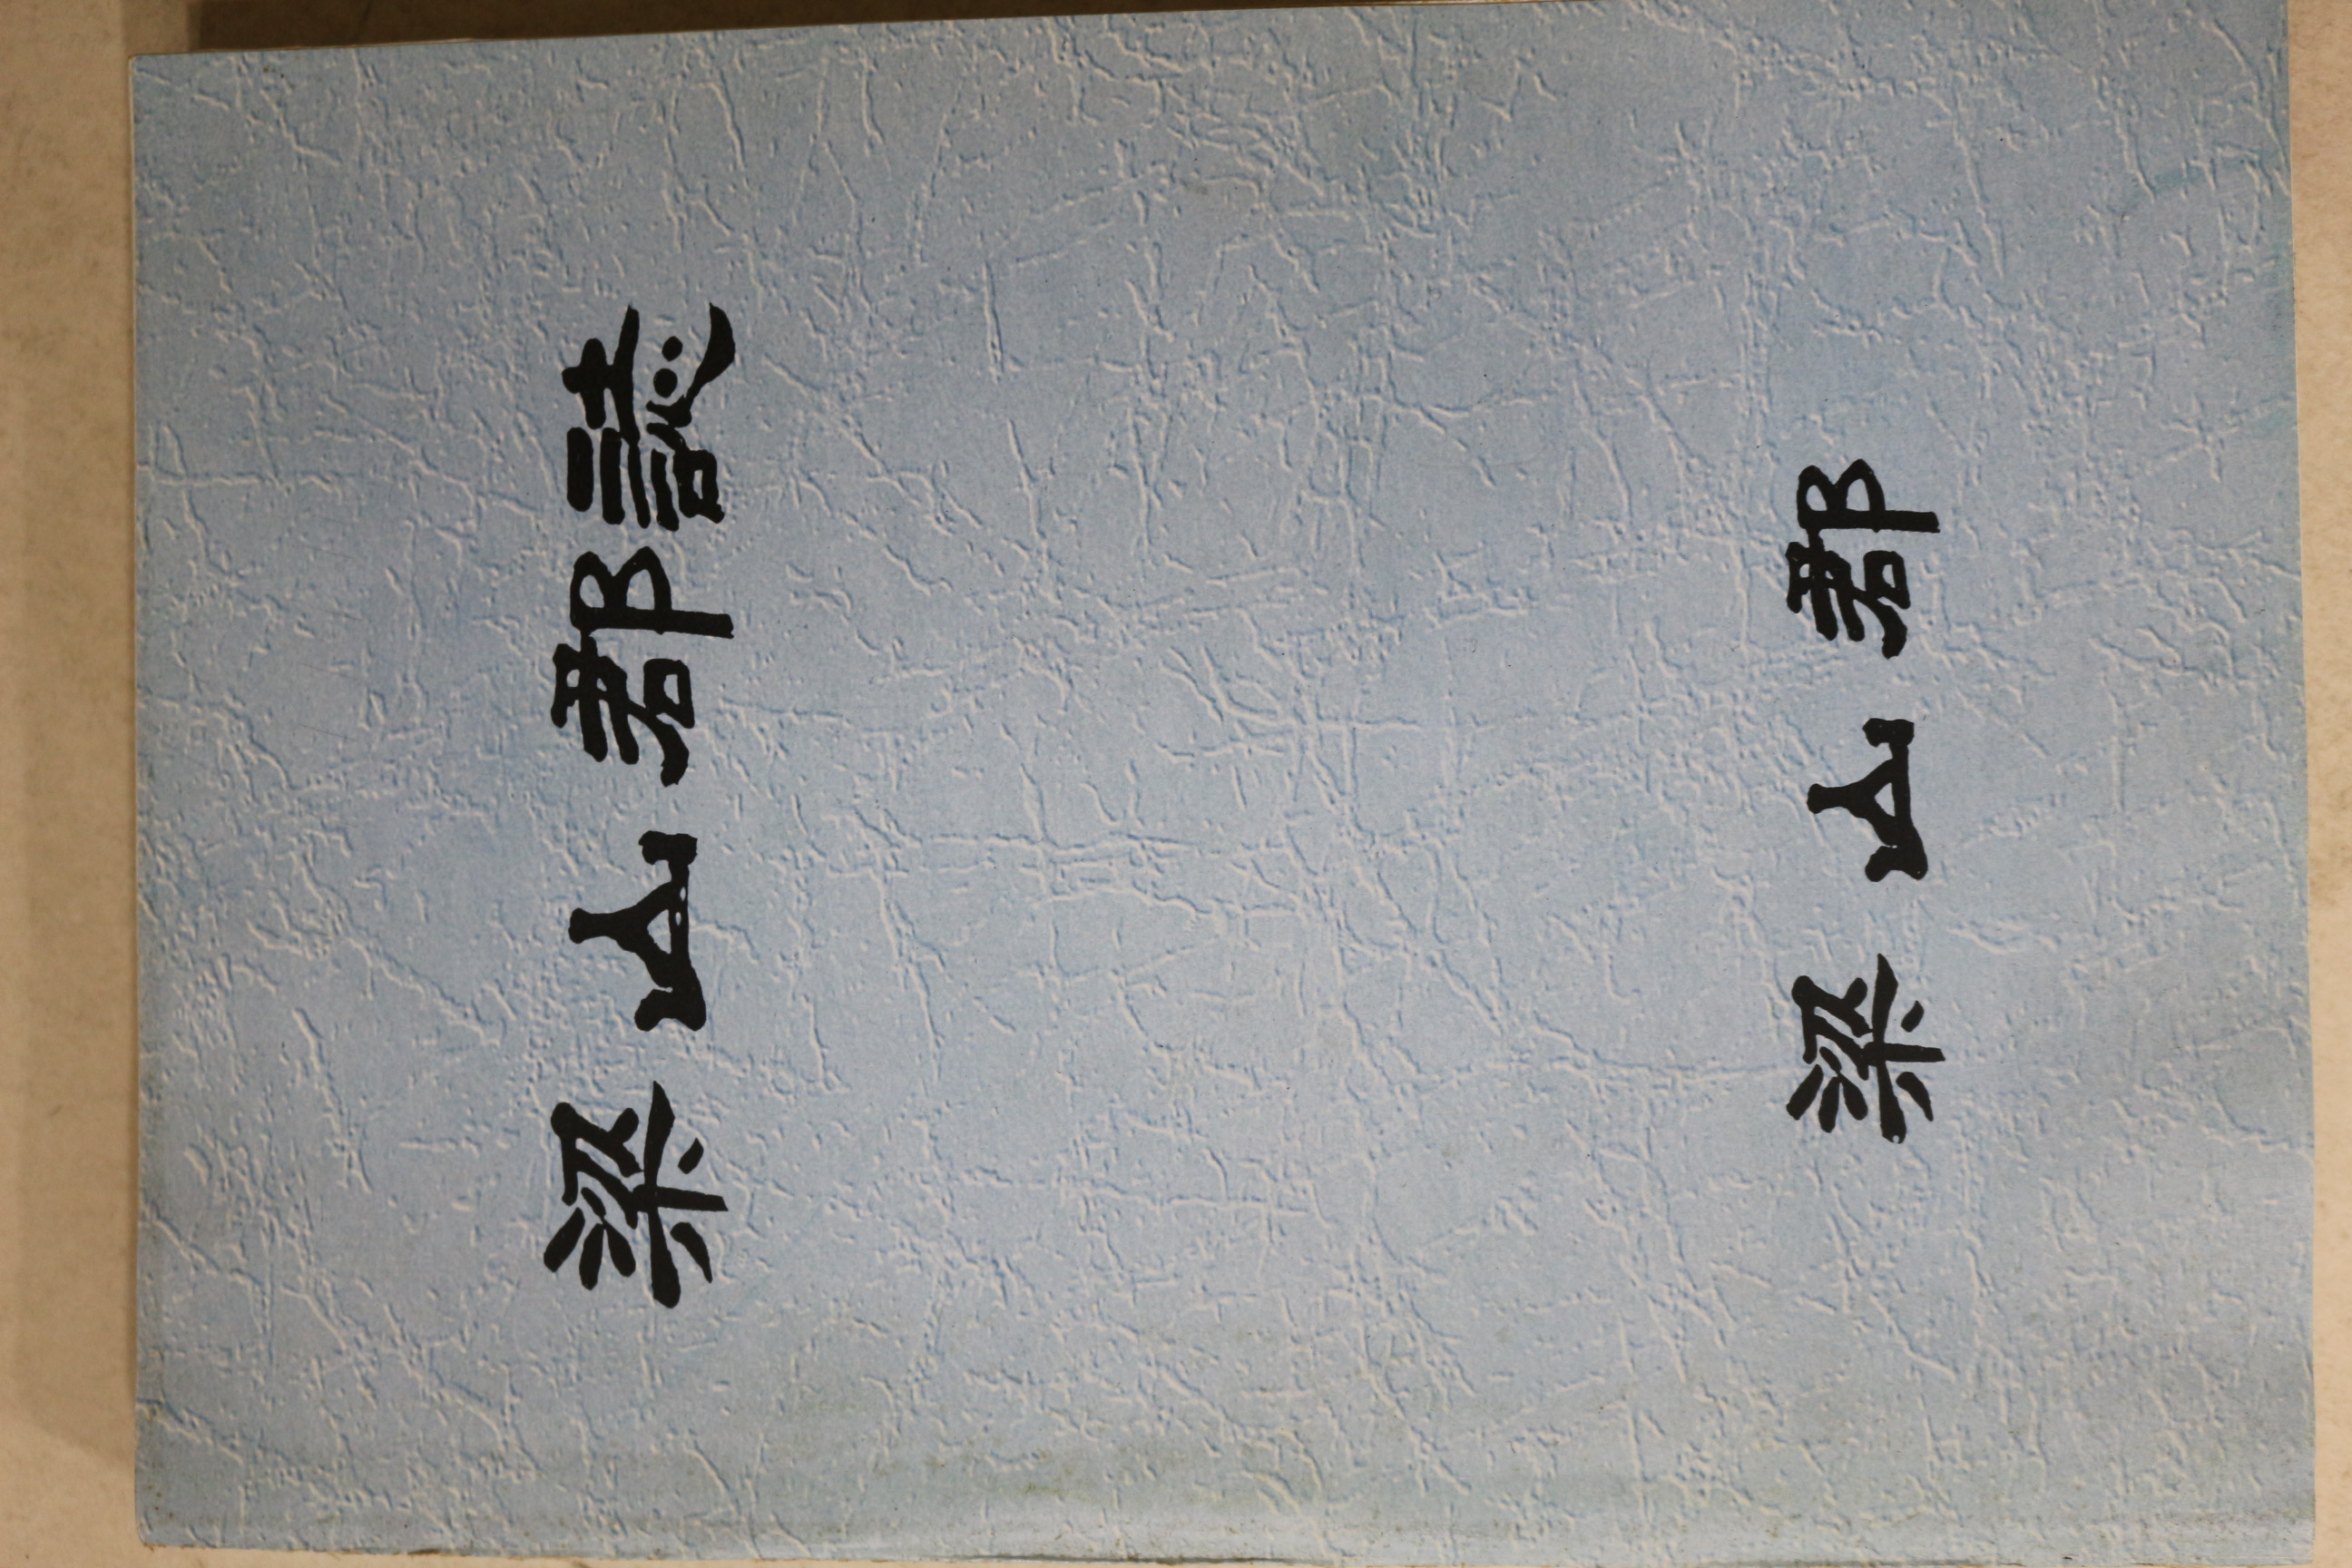 梁山郡誌
梁山郡